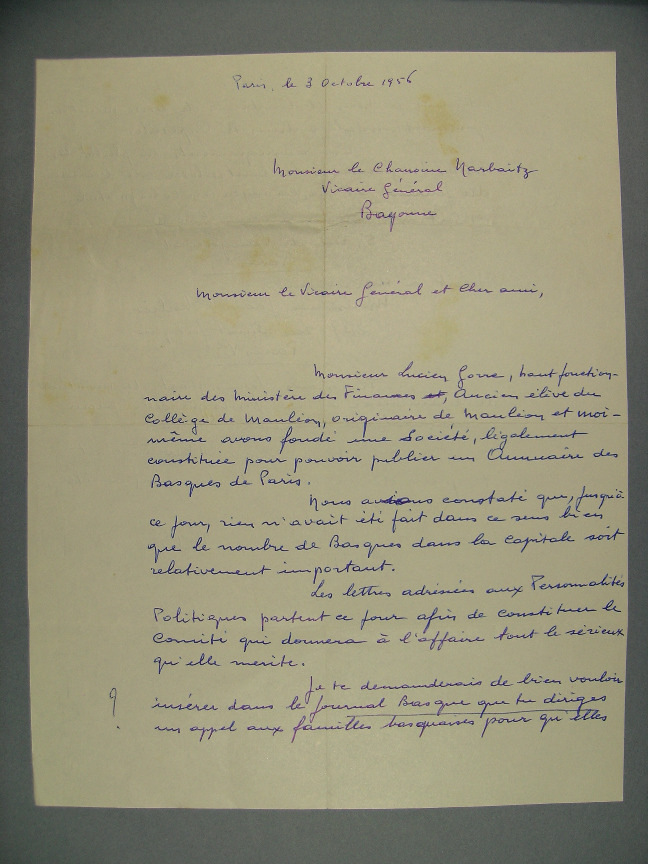 Paris, le 3 Octobre 1956
Monsieur le Chanoine Narbaitz
Vicaire Général
Bayonne
Monsieur le Vicaire Général et Cher ami,
Monsieur Lucien Gorre, haut fonction-
naire des Ministère des Finances et, Ancien élève du
Collège de Mauléon, originaire de Mauléon et moi-
même avons fondé une Société, légalement
constituée pour pouvoir publier un Annuaire des
Basques de Paris.
Nous avions constaté que, jusqu'à
ce jour, rien n'avait été fait dans ce sens bien
que le nombre de Basques dans la Capitale soit
relativement important.
Les lettres adressées aux Personnalités
Politiques partent ce jour afin de constituer le
Comité qui donnera à l'affaire tout le sérieux
qu'elle merite.
Je te demanderais de bien vouloir
? insérer dans le Journal Basque que tu diriges
un appel aux familles basquaises pour qu'elles